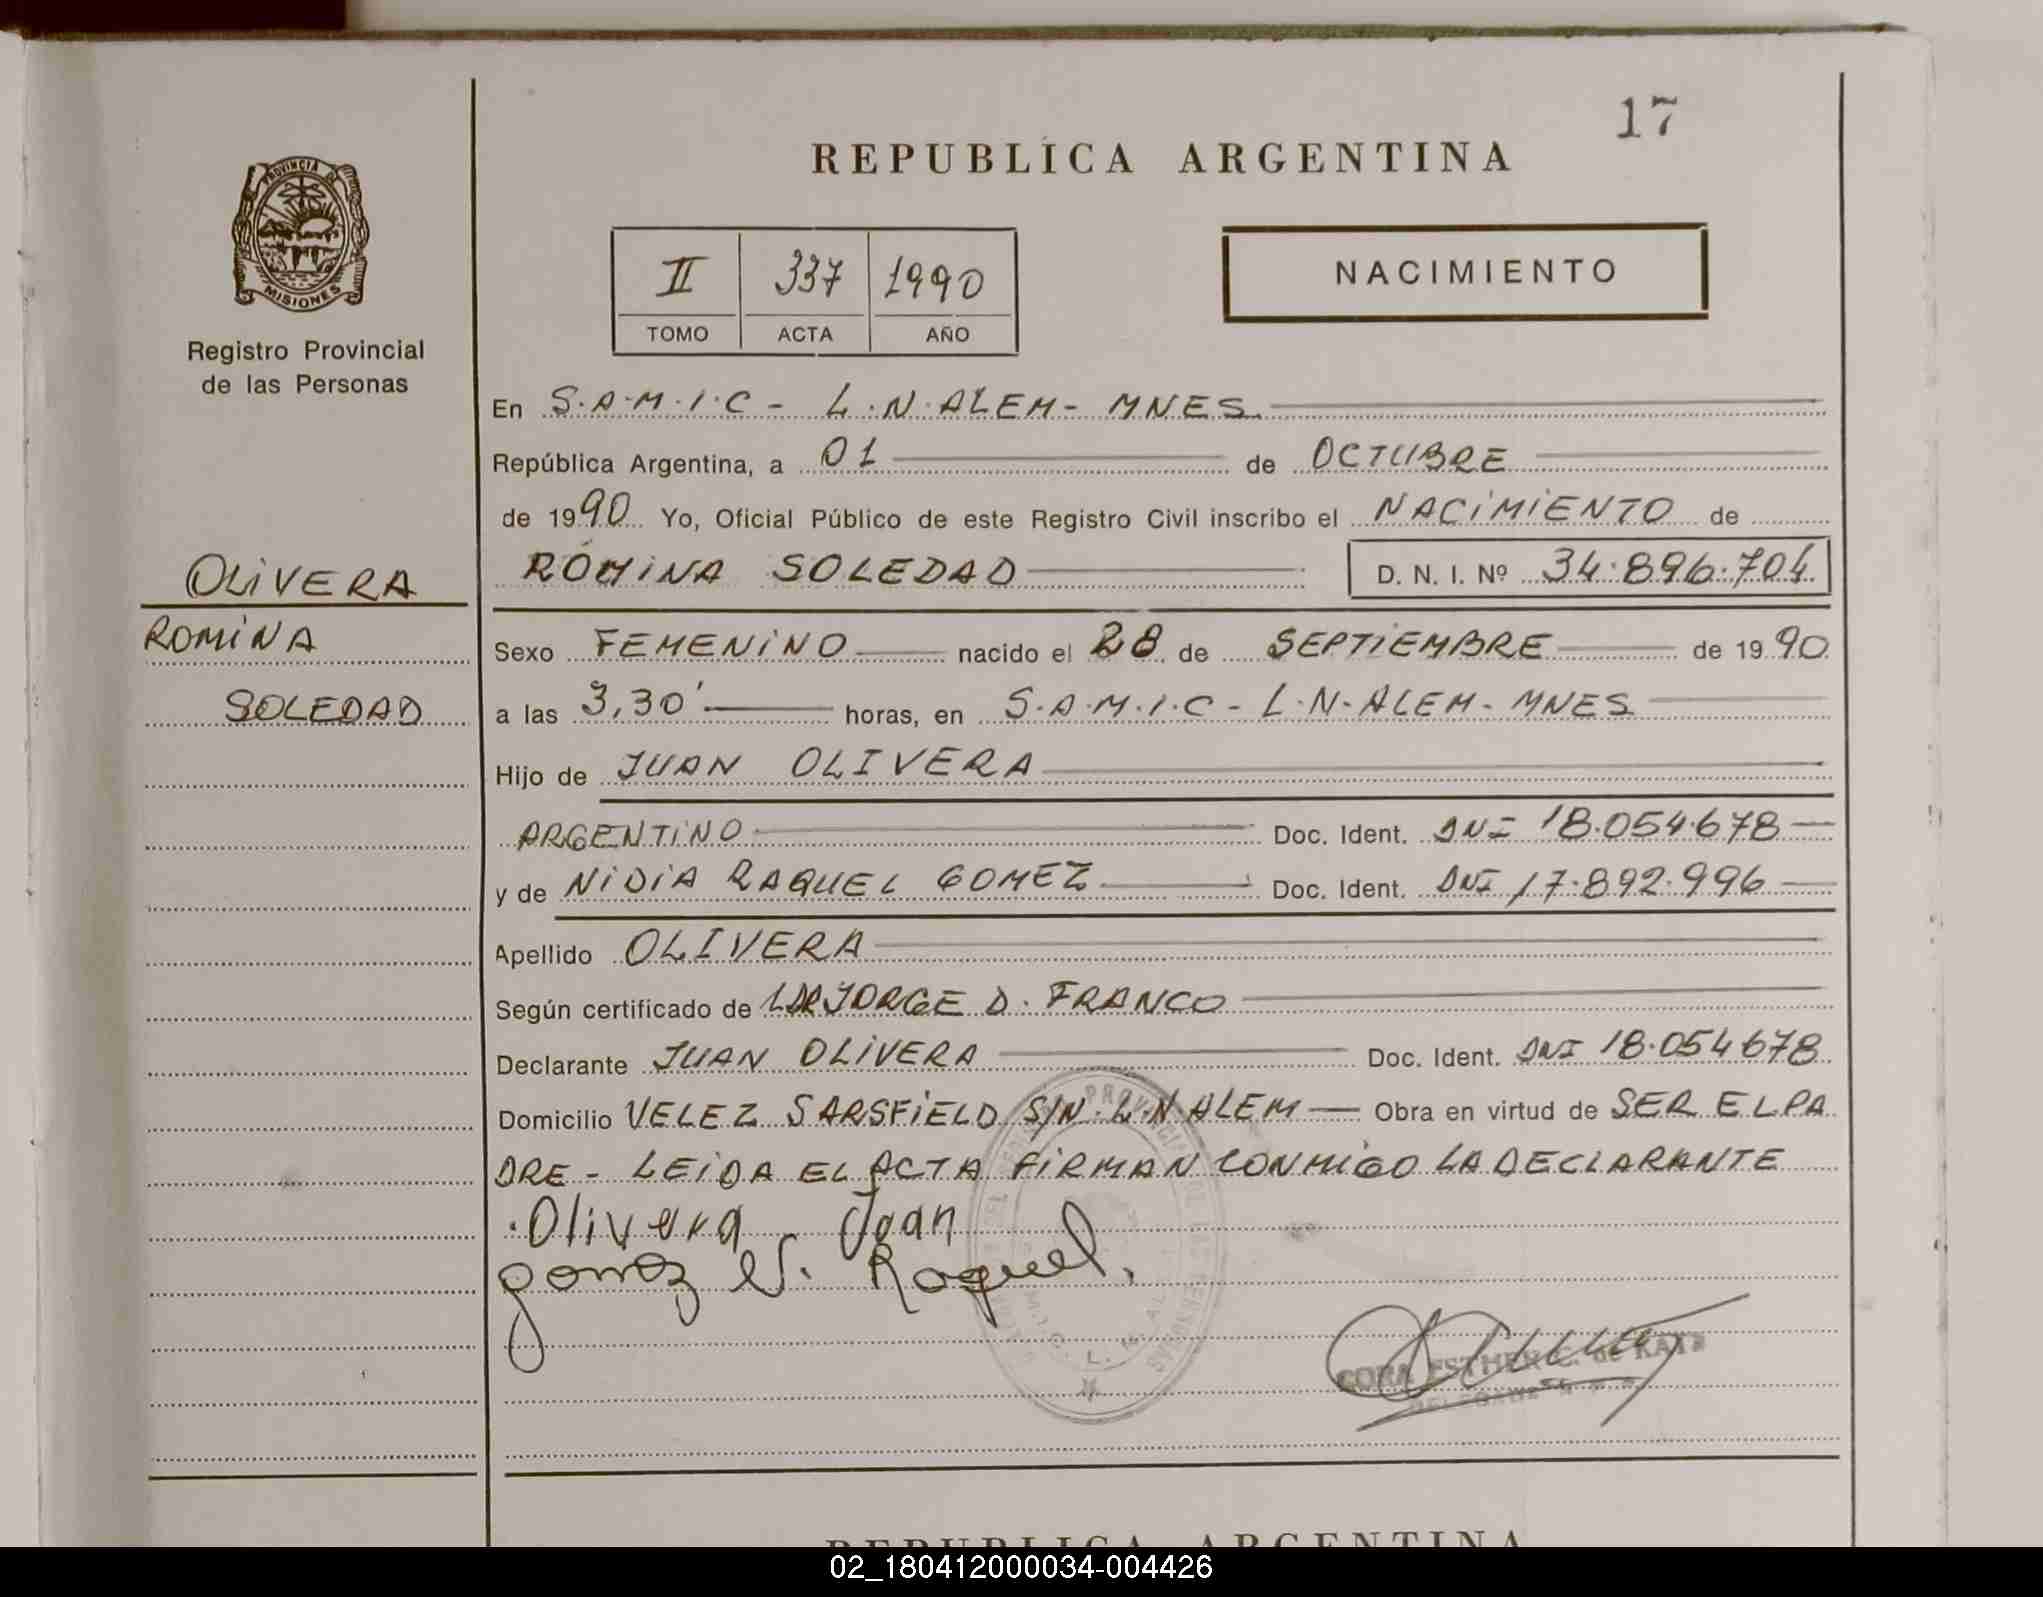 17
REPUBLICA ARGENTINA
PROVINCIA DE
MISIONES
Registro Provincial
de las Personas
II 337 1990
TOMO ACTA AÑO
NACIMIENTO
En S.A.M.I.C - L.N.ALEM - MNES
República Argentina, a 01 de OCTUBRE
de 1990 Yo, Oficial Público de este Registro Civil inscribo el NACIMIENTO de
ROMINA SOLEDAD D. N. I. Nº 34.896.704
OLIVERA
ROMINA
SOLEDAD
Sexo FEMENINO nacido el 28 de SEPTIEMBRE de 1990
a las 3,30' horas, en S.A.M.I.C - L.N.ALEM - MNES
Hijo de JUAN OLIVERA
ARGENTINO Doc. Ident. DNI 18.054.678
y de NIDIA RAQUEL GOMEZ Doc. Ident. DNI 17.892.996
Apellido OLIVERA
Según certificado de JORGE D. FRANCO
Declarante JUAN OLIVERA Doc. Ident. DNI 18.054678
Domicilio VELEZ SARSFIELD S/N. L.N.ALEM Obra en virtud de SER EL PA
DRE - LEIDA EL ACTA FIRMAN CONMIGO LA DECLARANTE
Olivera Juan
gomez N. Raquel.
ESTHER C. de
REPUBLICA ARGENTINA
02_180412000034-004426